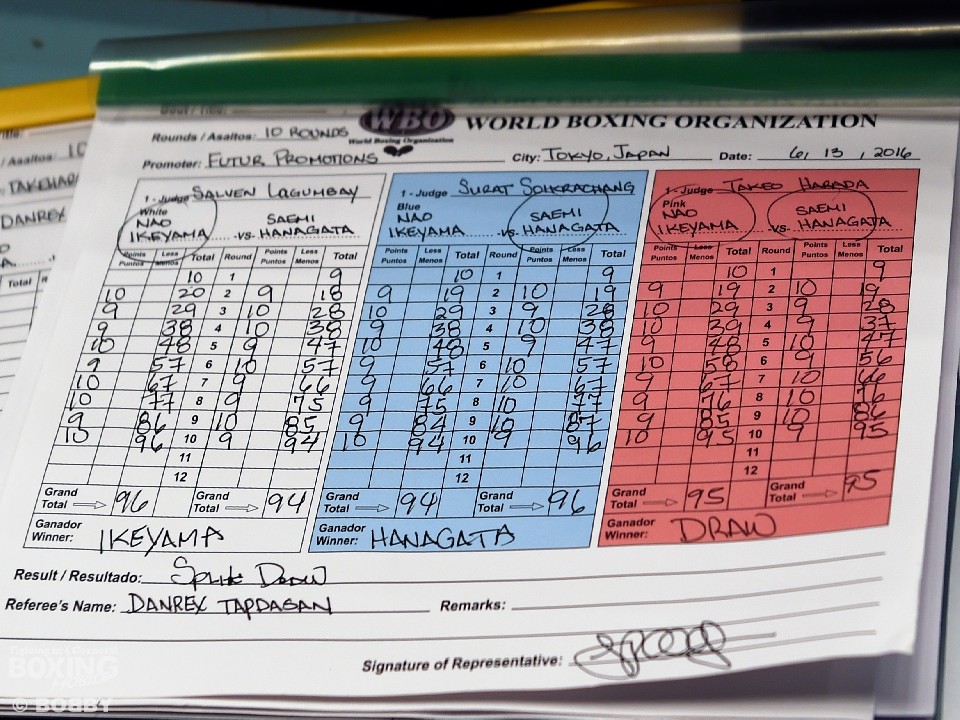 Rounds / Asaltos: 10 ROUNDS
WBO
World Boxing Organization
WORLD BOXING ORGANIZATION
Promoter: FUTUR PROMOTIONS City: TOKYO, JAPAN Date: 6, 13, 2016
1 - Judge SALVEN LAGUMBAY
White
NAO IKEYAMA .vs. SAEMI HANAGATA
Points Puntos Less Menos Total Round Points Puntos Less Menos Total
10 1 9
10 20 2 9 18
9 29 3 10 28
9 38 4 10 38
10 48 5 9 47
9 57 6 10 57
10 67 7 9 66
10 77 8 9 75
9 86 9 10 85
10 96 10 9 94
11
12
Grand Total 96 Grand Total 94
Ganador Winner: IKEYAMA
1 - Judge SURAT SOIKRACHANG
Blue
NAO IKEYAMA .vs. SAEMI HANAGATA
Points Puntos Less Menos Total Round Points Puntos Less Menos Total
10 1 9
9 19 2 10 19
10 29 3 9 28
9 38 4 10 38
10 48 5 9 47
9 57 6 10 57
9 66 7 10 67
9 75 8 10 77
9 84 9 10 87
10 94 10 9 96
11
12
Grand Total 94 Grand Total 96
Ganador Winner: HANAGATA
1 - Judge TAKEO HARADA
Pink
NAO IKEYAMA .vs. SAEMI HANAGATA
Points Puntos Less Menos Total Round Points Puntos Less Menos Total
10 1 9
9 19 2 10 19
10 29 3 9 28
10 39 4 9 37
9 48 5 10 47
10 58 6 9 56
9 67 7 10 66
9 76 8 10 76
9 85 9 10 86
10 95 10 9 95
11
12
Grand Total 95 Grand Total 95
Ganador Winner: DRAW
Result / Resultado: SPLIT DRAW
Referee's Name: DANREX TAPDASAN Remarks:
Signature of Representative:
BOXING
© BOBBY